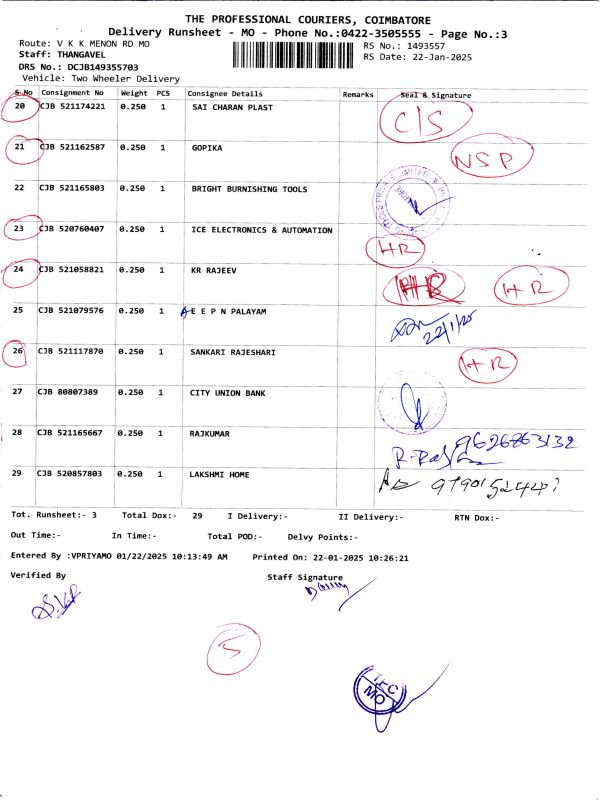 THE PROFESSIONAL COURIERS, COIMBATORE
Delivery Runsheet - MO - Phone No.:0422-3505555 - Page No.:3
Route: V K K MENON RD MO RS No.: 1493557
Staff: THANGAVEL RS Date: 22-Jan-2025
DRS No.: DCJB149355703
Vehicle: Two Wheeler Delivery
S.No Consignment No Weight PCS Consignee Details Remarks Seal & Signature
20 CJB 521174221 0.250 1 SAI CHARAN PLAST C/S
21 CJB 521162587 0.250 1 GOPIKA NSP
22 CJB 521165803 0.250 1 BRIGHT BURNISHING TOOLS
23 CJB 520760407 0.250 1 ICE ELECTRONICS & AUTOMATION HR
24 CJB 521058821 0.250 1 KR RAJEEV HR HR
25 CJB 521079576 1 0.250 E E P N PALAYAM 22/1/25
26 CJB 521117870 0.250 1 SANKARI RAJESHARI HR
27 CJB 80807389 0.250 1 CITY UNION BANK
28 CJB 521165667 0.250 1 RAJKUMAR 9626263132
29 CJB 520857803 0.250 1 LAKSHMI HOME
Tot. Runsheet:- 3 Total Dox:- 29 I Delivery:- II Delivery:- RTN Dox:-
Out Time:- In Time:- Total POD:- Delvy Points:-
Entered By :VPRIYAMO 01/22/2025 10:13:49 AM Printed On: 22-01-2025 10:26:21
Verified By Staff Signature
5
TPC
MO